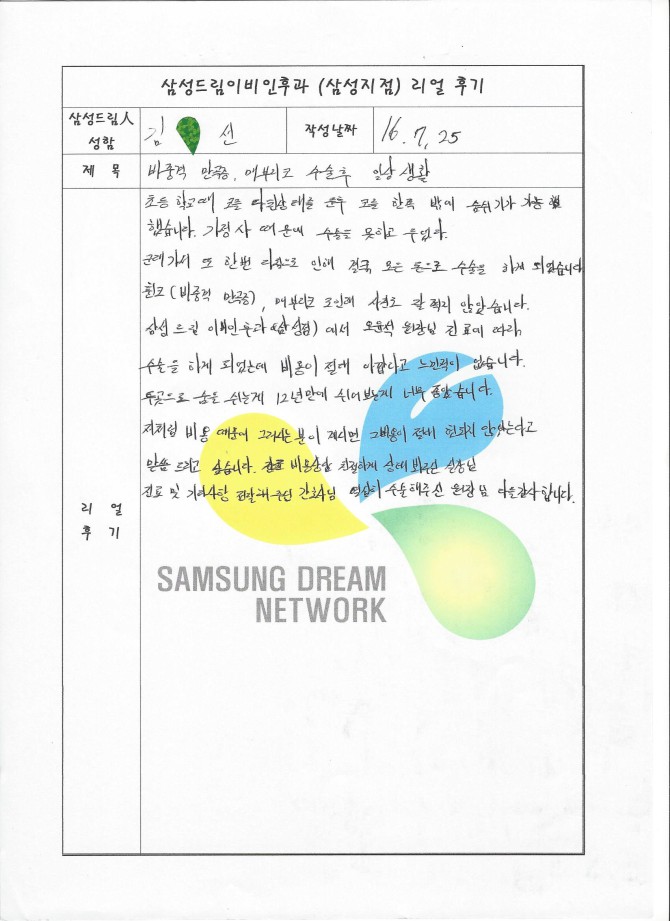 삼성드림이비인후과 (삼성지점) 리얼 후기
삼성드림人 성함
김 선
작성날짜
16. 7. 25
제 목
비중격 만곡증, 매부리코 수술후 일상 생활
리 얼 후 기
초등 학교때 코를 다친상태로 군두 코를 한쪽 밖에 숨쉬기가 가능
했습니다. 가정사 때문에 수술을 못하고 두었다.
군대가서 또 한번 다침으로 인해 결국 모든 돈으로 수술을 하게 되었습니다
휜코 (비중격 만곡증), 매부리코 코인해 사연도 갈 적지 않았습니다.
삼성 드림 이비인후과 (삼성점) 에서 오윤석 원장님 진료에 따라,
수술을 하게 되었는데 비용이 절대 아깝다고 느낀적이 없습니다.
두곳으로 숨을 쉬는게 12년만에 쉬어보는게 너무 좋았습니다.
저처럼 비용 때문에 그러시는 분이 계시면 그비용이 절대 헛되지 않았는다고
말씀 드리고 싶습니다. 비용상담 친절하게 상대 해주신 실장님
진료 및 기타사항 전달해 주신 간호사님 열심히 수술해주신 원장님 다들감사합니다.
SAMSUNG DREAM
NETWORK